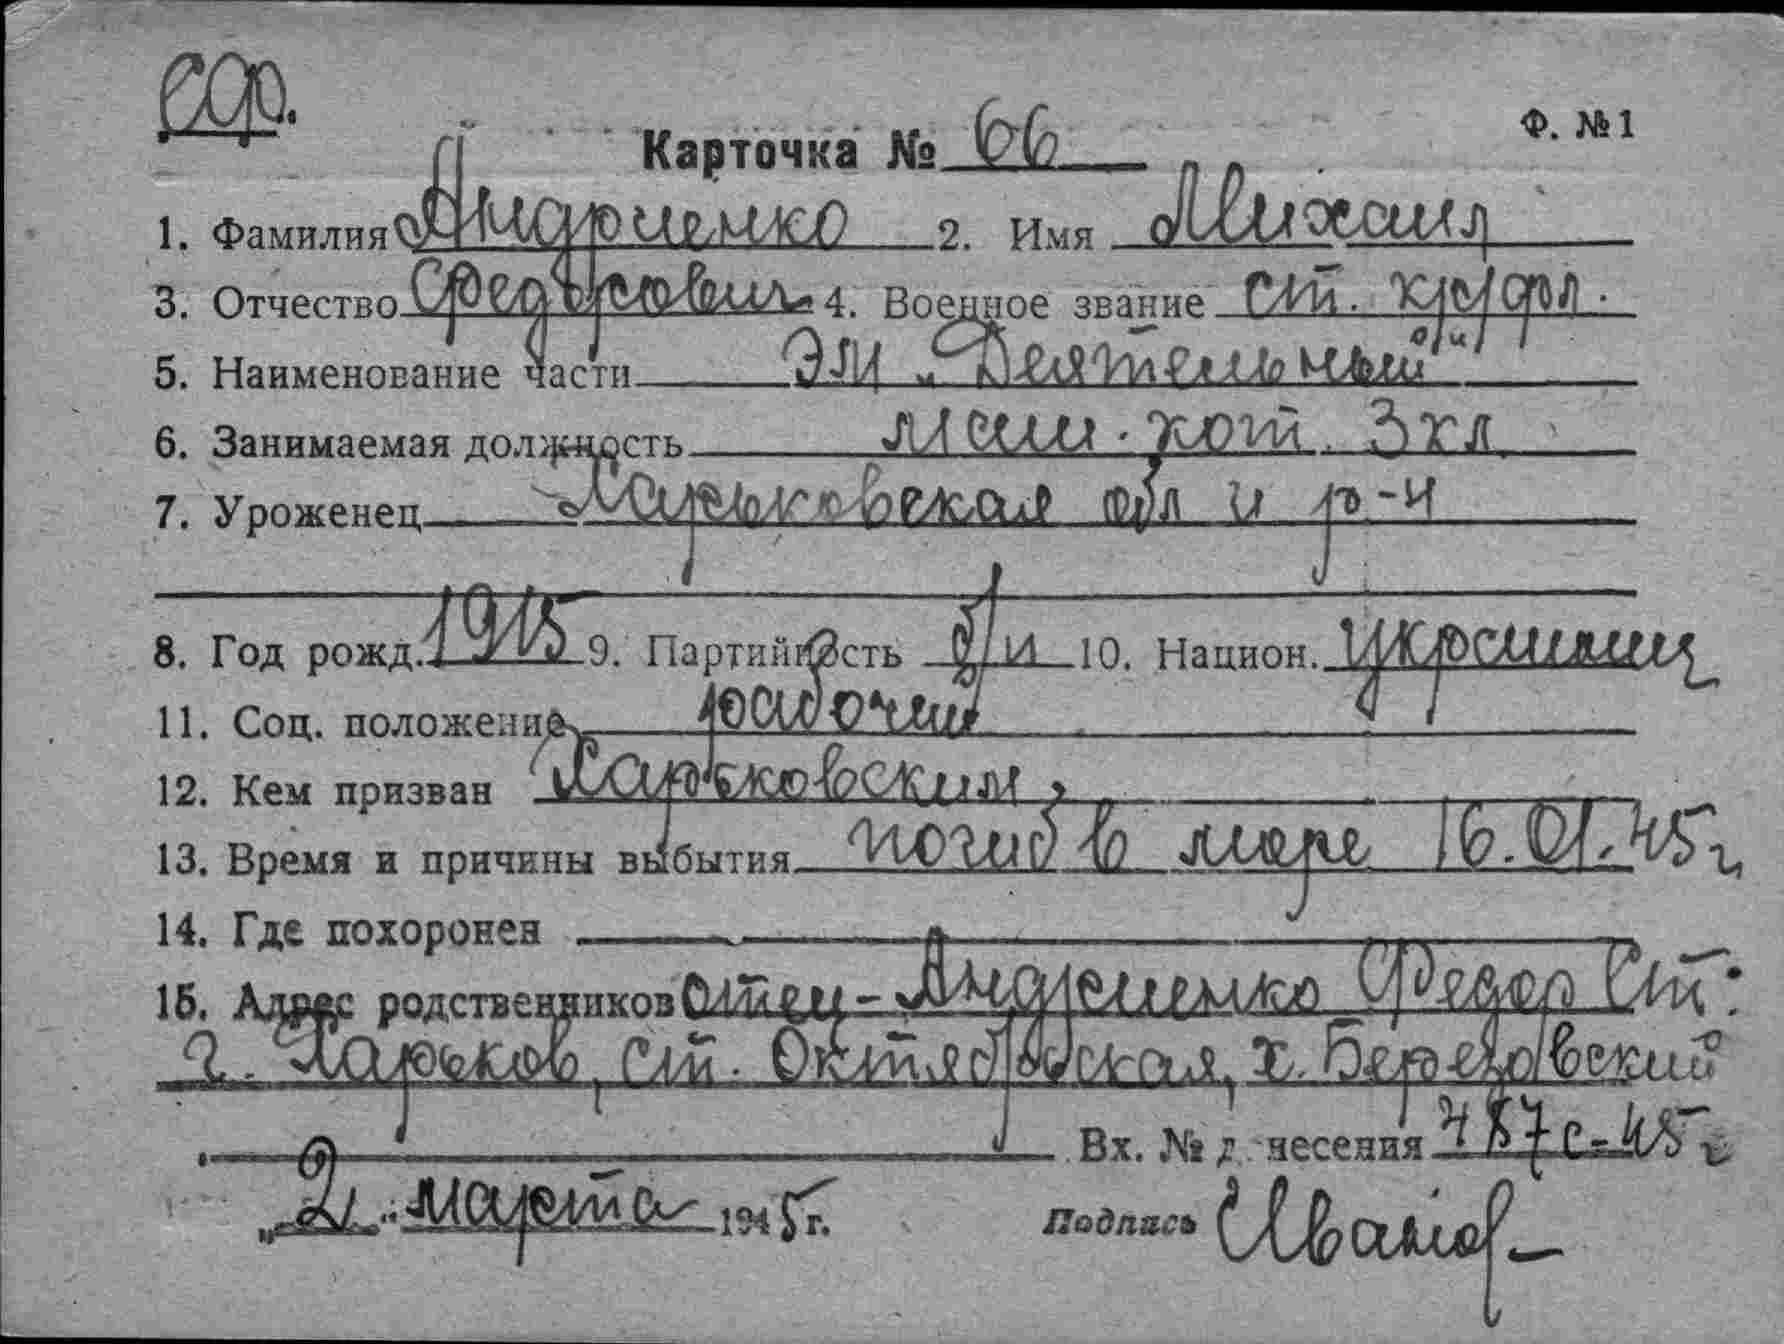 СФ.
Ф. №1
Карточка № 66
1. Фамилия Андриенко 2. Имя Михаил
3. Отчество Федорович 4. Военное звание ст. кр-фл.
5. Наименование части ЭМ „Деятельный"
6. Занимаемая должность маш. кот. 3 кл
7. Уроженец Харьковская обл и р-н
8. Год рожд. 1915 9. Партийность б/п 10. Национ. украинец
11. Соц. положение рабочий
12. Кем призван Харьковским
13. Время и причины выбытия погиб в море 16.01.45 г
14. Где похоронен
15. Адрес родственников отец - Федор Ст.
г. Харьков, ст. Октябрьская, х. Березовский
Вх. № донесения 487с-45 г
„2" марта 1945 г. Подпись Иванов